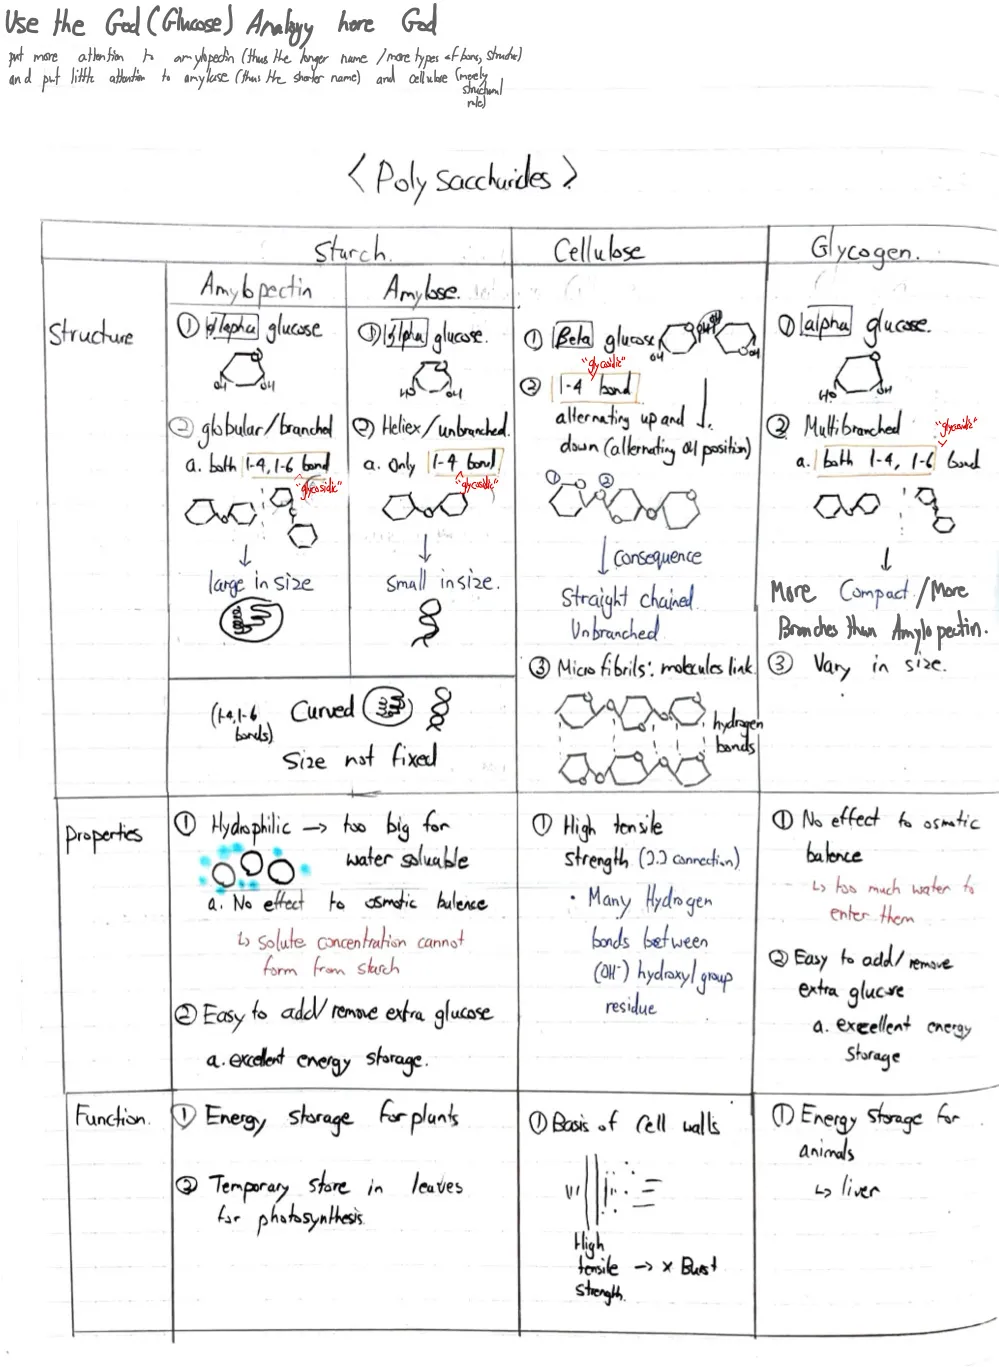 Use the God (Glucose) Analogy here God
put more attention to amylopectin (thus the longer name / more types of bond, structure)
and put little attention to amylase (thus the shorter name) and cellulose (merely
structural
role)
< Polysaccharides >
Starch.
Cellulose
Glycogen.
Amylopectin
Amylose.
Structure
① alpha glucose
OH OH
② globular/branched
a. both 1-4, 1-6 bond
"glycosidic"
↓
large in size
① alpha glucose.
HO OH
② Heliex/unbranched.
a. Only 1-4 bond
"glycosidic"
↓
Small in size.
(1-4, 1-6
bonds)
Curved
Size not fixed
① Beta glucose
OH OH OH OH
"glycosidic"
② 1-4 bond
alternating up and
down (alternating OH position)
① ②
↓ Consequence
Straight chained.
Unbranched.
③ Micro fibrils: molecules link
hydrogen
bonds
① alpha glucose.
HO OH
② Multibranched
"glycosidic"
a. both 1-4, 1-6 bond
↓
More Compact / More
Branches than Amylopectin.
③ Vary in size.
Properties
① Hydrophilic → too big for
water soluable
a. No effect to osmotic balence
↳ solute concentration cannot
form from starch
② Easy to add/remove extra glucose
a. excellent energy storage.
① High tensile
strength (2.2 connection)
• Many Hydrogen
bonds between
(OH⁻) hydroxyl group
residue
① No effect to osmotic
balence
↳ too much water to
enter them
② Easy to add/remove
extra glucose
a. excellent energy
Storage
Function.
① Energy storage for plants
② Temporary store in leaves
for photosynthesis.
① Basis of Cell walls
High
tensile → x Burst
Strength.
① Energy Storage for
animals
↳ liver